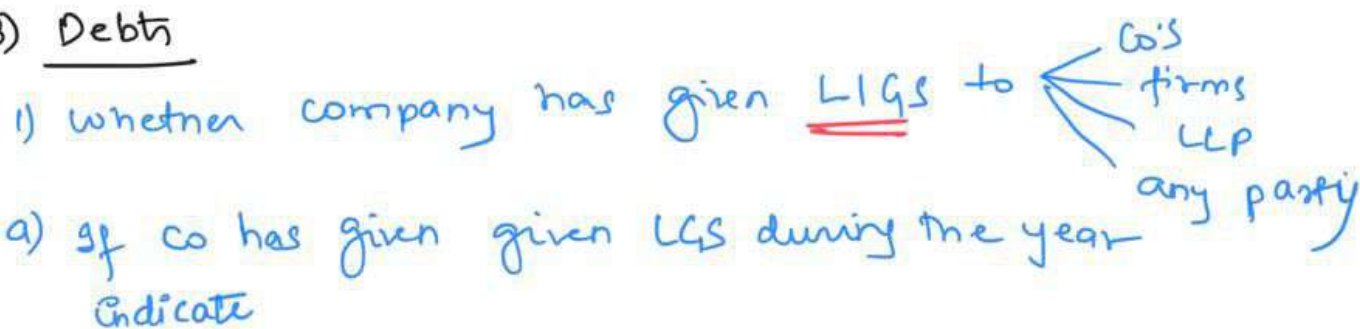 3) Debts
1) whether company has given LIGS to
Co's
firms
LLP
any party
a) If co has given given LGS during the year
indicate